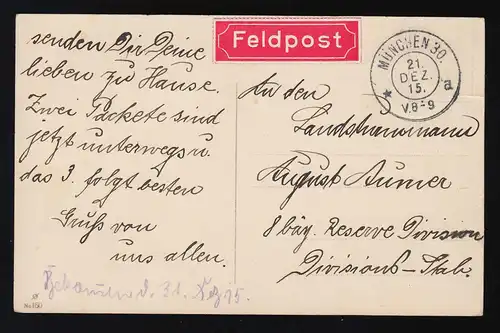 senden Dir Deine
lieben zu Hause.
Zwei Packete sind
jetzt unterwegs u.
das 3. folgt besten
Gruß von
uns allen.
d. 31. Dez 15.
Feldpost
MÜNCHEN 30.
21.
DEZ.
15.
V.8-9
a
An den
Landsturmmann
August Aumer
8 bay. Reserve Division
Divisions-Stab.